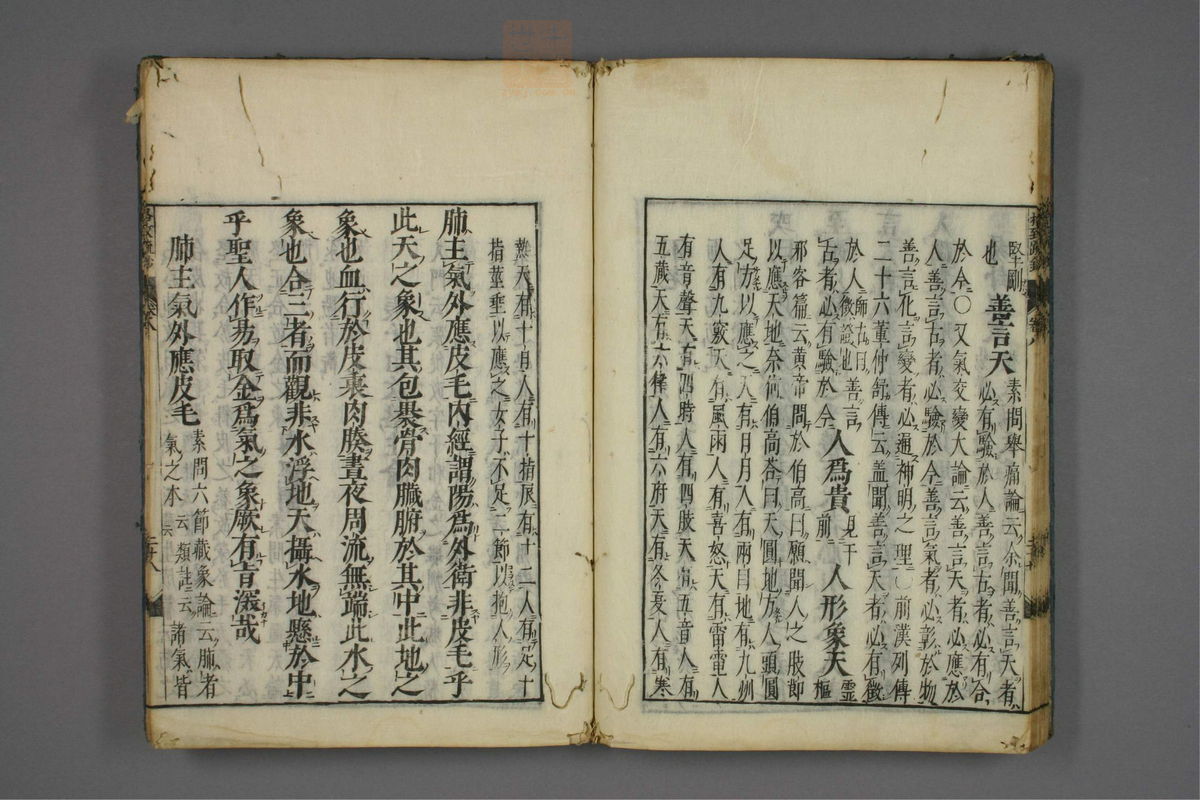 堅剛
也 善言天 素問舉痛論云余聞善言天者
必有驗於人善言古者必有合
於今〇又氣交變大論云善言天者必應於
人善言古者必驗於今善言氣者必彰於物
善言化言變者必通神明之理〇前漢列傳
二十六董仲舒傳云蓋聞善言天者必有徵
於人師古曰徵證也善言
古者必有驗於今 人爲貴 見于前 人形象天 靈樞
邪客篇云黄帝問於伯高曰願聞人之肢節
以應天地奈何伯高荅曰天圓地方人頭圓
足方以應之天有日月人有兩目地有九州
人有九竅天有風雨人有喜怒天有雷電人
有音聲天有四時人有四肢天有五音人有
五藏天有六律人有六府天有冬夏人有寒
熱天有十日人有十指辰有十二人有足十
指莖垂以應之女子不足二節以抱人形
肺主氣外應皮毛内經謂陽爲外衛非皮毛乎
此天之象也其包褁骨肉臟腑於其中此地之
象也血行於皮裏肉腠晝夜周流無端此水之
象也合三者而觀非水浮地天攝水地懸於中
乎聖人作易取金爲氣之象厥有旨深哉
肺主氣外應皮毛 素問六節藏象論云肺者
氣之本云云 類註云諸氣皆